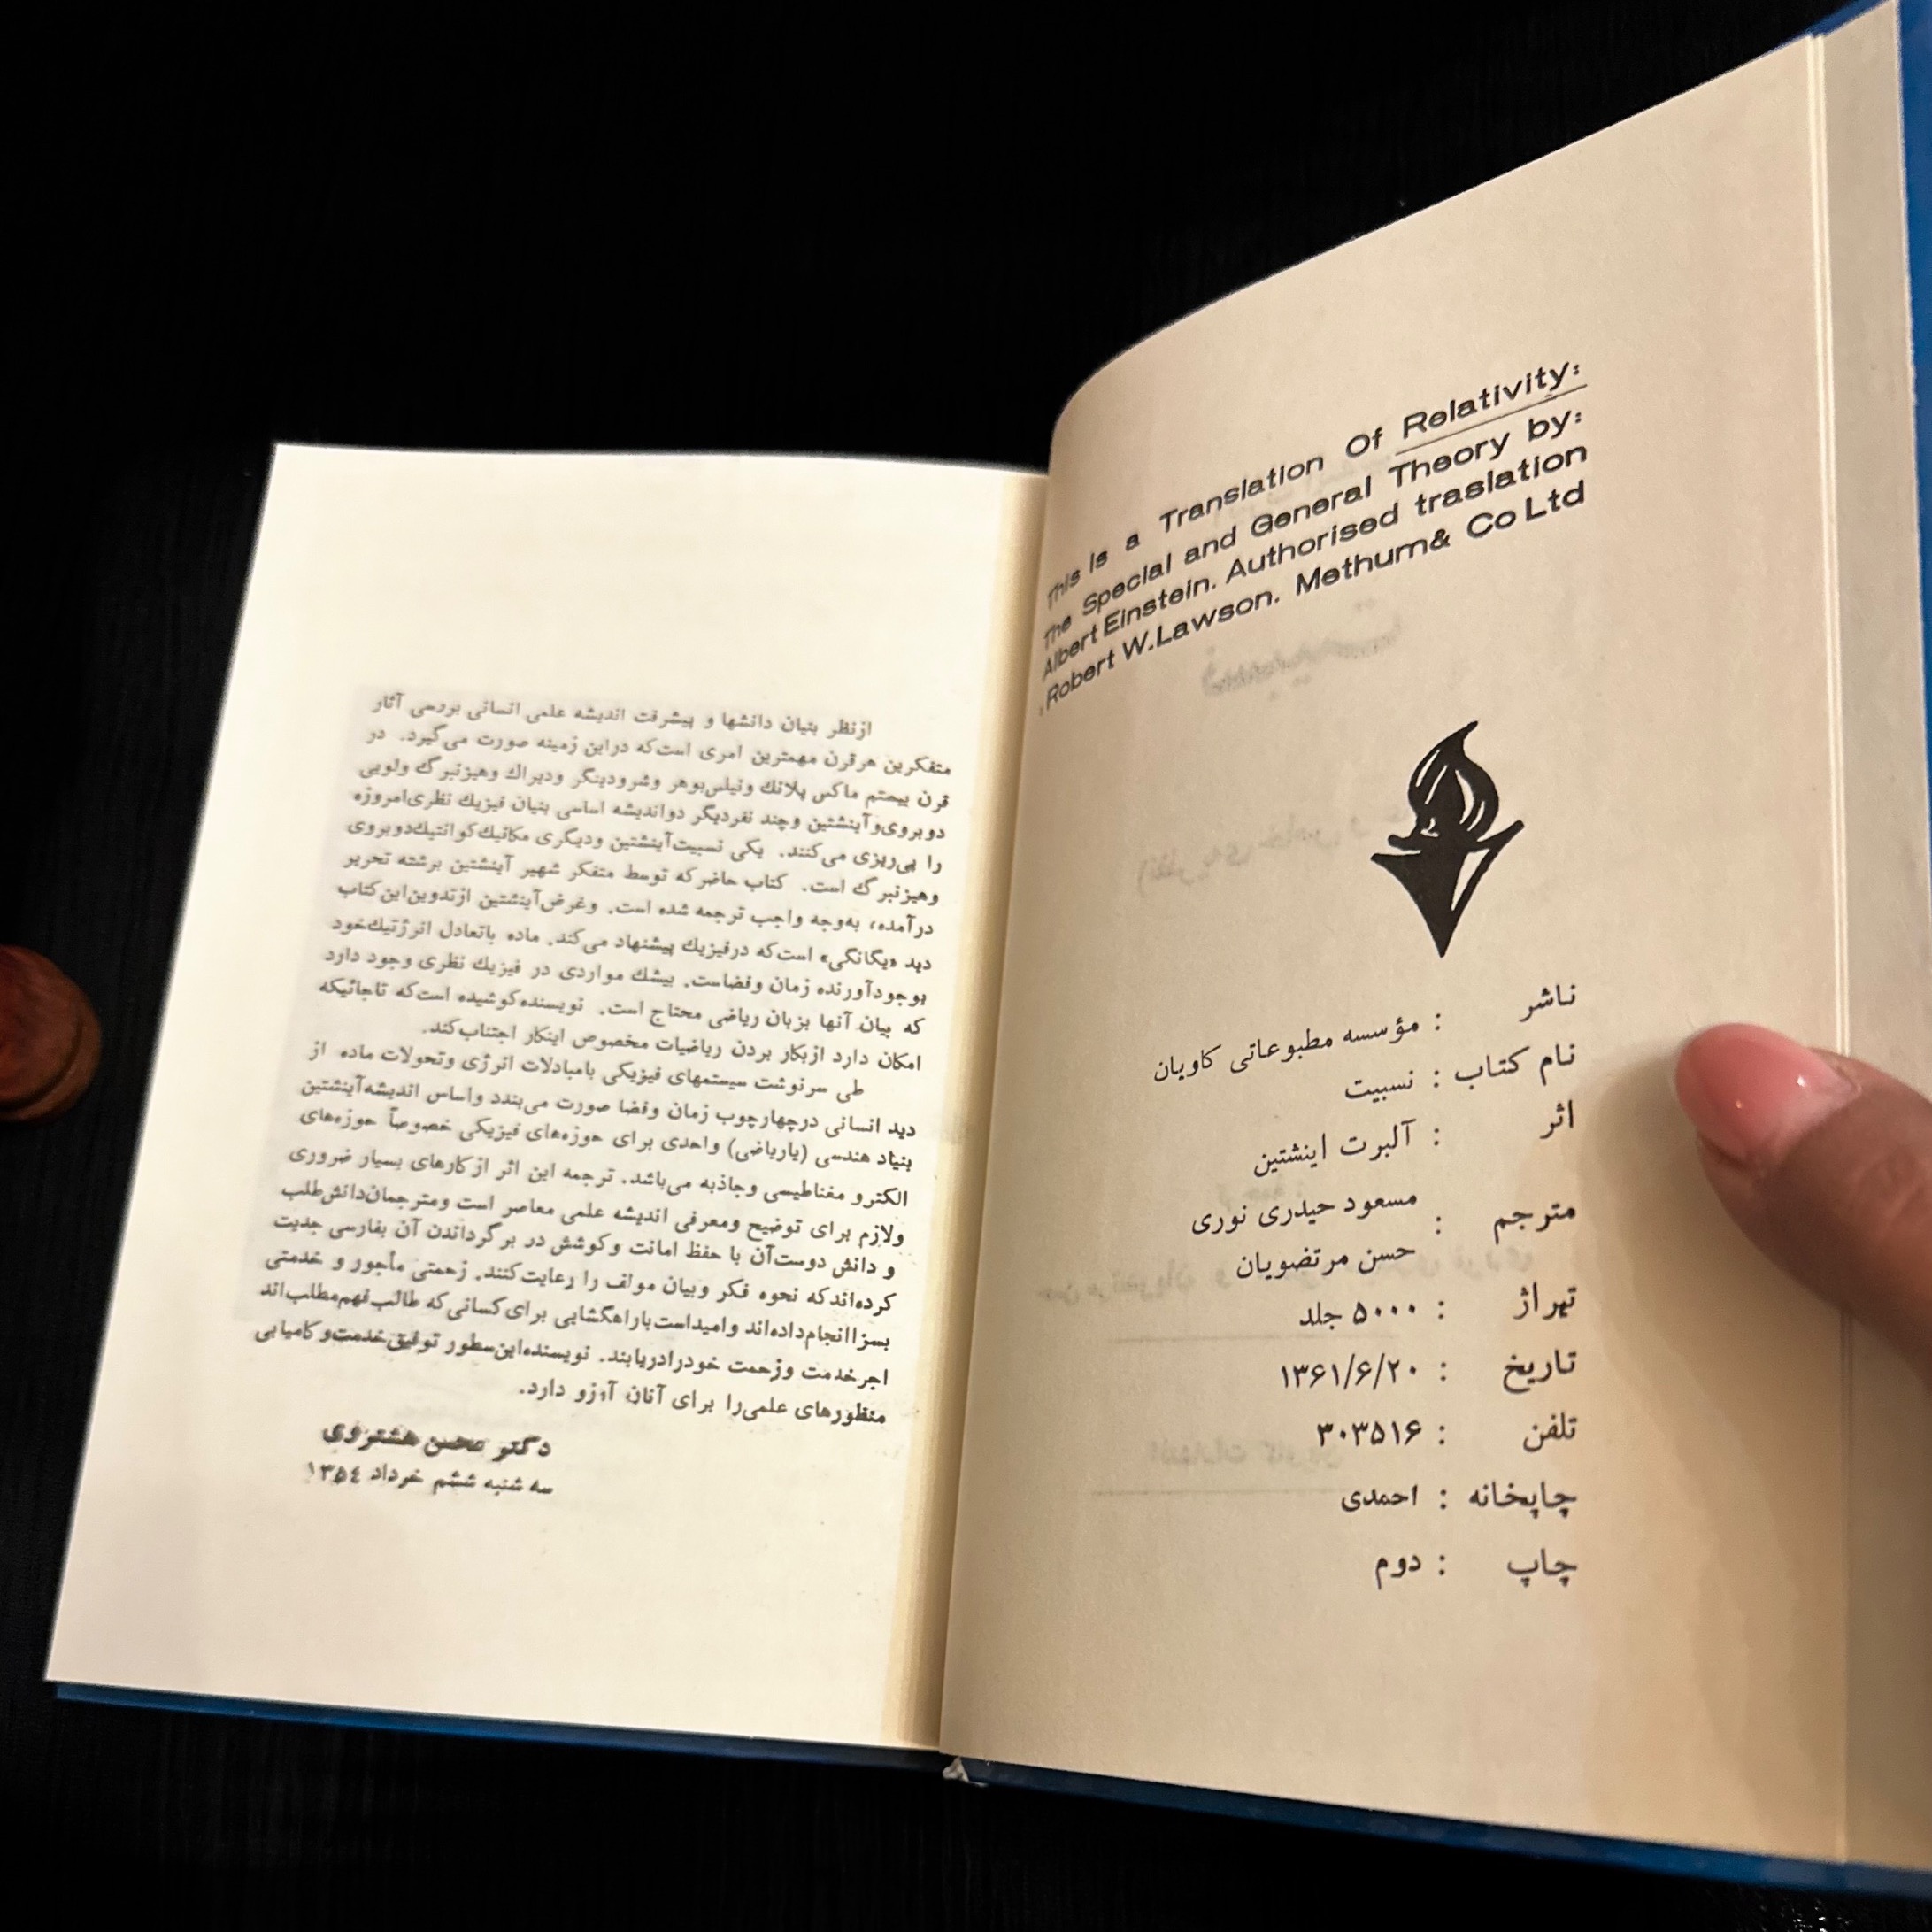 This is a Translation Of Relativity:
The Special and General Theory by:
Albert Einstein. Authorised traslation
: Robert W.Lawson. Methum& Co Ltd
ناشر : مؤسسه مطبوعاتی کاویان
نام کتاب : نسبیت
اثر : آلبرت اینشتین
مترجم : مسعود حیدری نوری
حسن مرتضویان
تهراژ : ۵۰۰۰ جلد
تاریخ : ۱۳۶۱/۶/۲۰
تلفن : ۳۰۳۵۱۶
چاپخانه : احمدی
چاپ : دوم
ازنظر بنیان دانشها و پیشرفت اندیشه علمی انسانی بررسی آثار
متفکرین هرقرن مهمترین امری است‌که دراین زمینه صورت می‌گیرد. در
قرن بیستم ماکس پلانك ونیلس‌بوهر وشرودینگر ودیراك وهیزنبرگ ولویی
دوبروی‌وآینشتین وچند نفردیگر دواندیشه اساسی بنیان فیزیك نظری‌امروزه
را پی‌ریزی می‌کنند. یکی نسبیت‌آینشتین ودیگری مکانیك‌کوانتیك‌دوبروی
وهیزنبرگ است. کتاب حاضرکه توسط متفکر شهیر آینشتین برشته تحریر
درآمده، به‌وجه واجب ترجمه شده است. وغرض‌آینشتین ازتدوین‌این‌کتاب
دید «یگانگی» است‌که درفیزیك پیشنهاد می‌کند. ماده باتعادل انرژتیك‌خود
بوجودآورنده زمان وفضاست. بیشك مواردی در فیزیك نظری وجود دارد
که بیان آنها بزبان ریاضی محتاج است. نویسنده‌کوشیده است‌که تاجائیکه
امکان دارد ازبکار بردن ریاضیات مخصوص اینکار اجتناب‌کند.
طی سرنوشت سیستمهای فیزیکی بامبادلات انرژی وتحولات ماده از
دید انسانی درچهارچوب زمان وفضا صورت می‌بندد واساس اندیشه‌آینشتین
بنیاد هندسی (یاریاضی) واحدی برای حوزه‌های فیزیکی خصوصاً حوزه‌های
الکترو مغناطیسی وجاذبه می‌باشد. ترجمه این اثر ازکارهای بسیار ضروری
ولازم برای توضیح ومعرفی اندیشه علمی معاصر است ومترجمان‌دانش‌طلب
و دانش دوست‌آن با حفظ امانت وکوشش در برگرداندن آن بفارسی جدیت
کرده‌اندکه نحوه فکر وبیان مولف را رعایت‌کنند. زحمتی مأجور و خدمتی
بسزاانجام‌داده‌اند وامیداست‌باراهگشایی برای‌کسانی‌که طالب‌فهم‌مطلب‌اند
اجرخدمت وزحمت خودرادریابند. نویسنده‌این‌سطور توفیق‌خدمت‌وکامیابی
منظورهای علمی‌را برای آنان آرزو دارد.
دکتر محسن هشترودی
سه شنبه ششم خرداد ۱۳۵٤